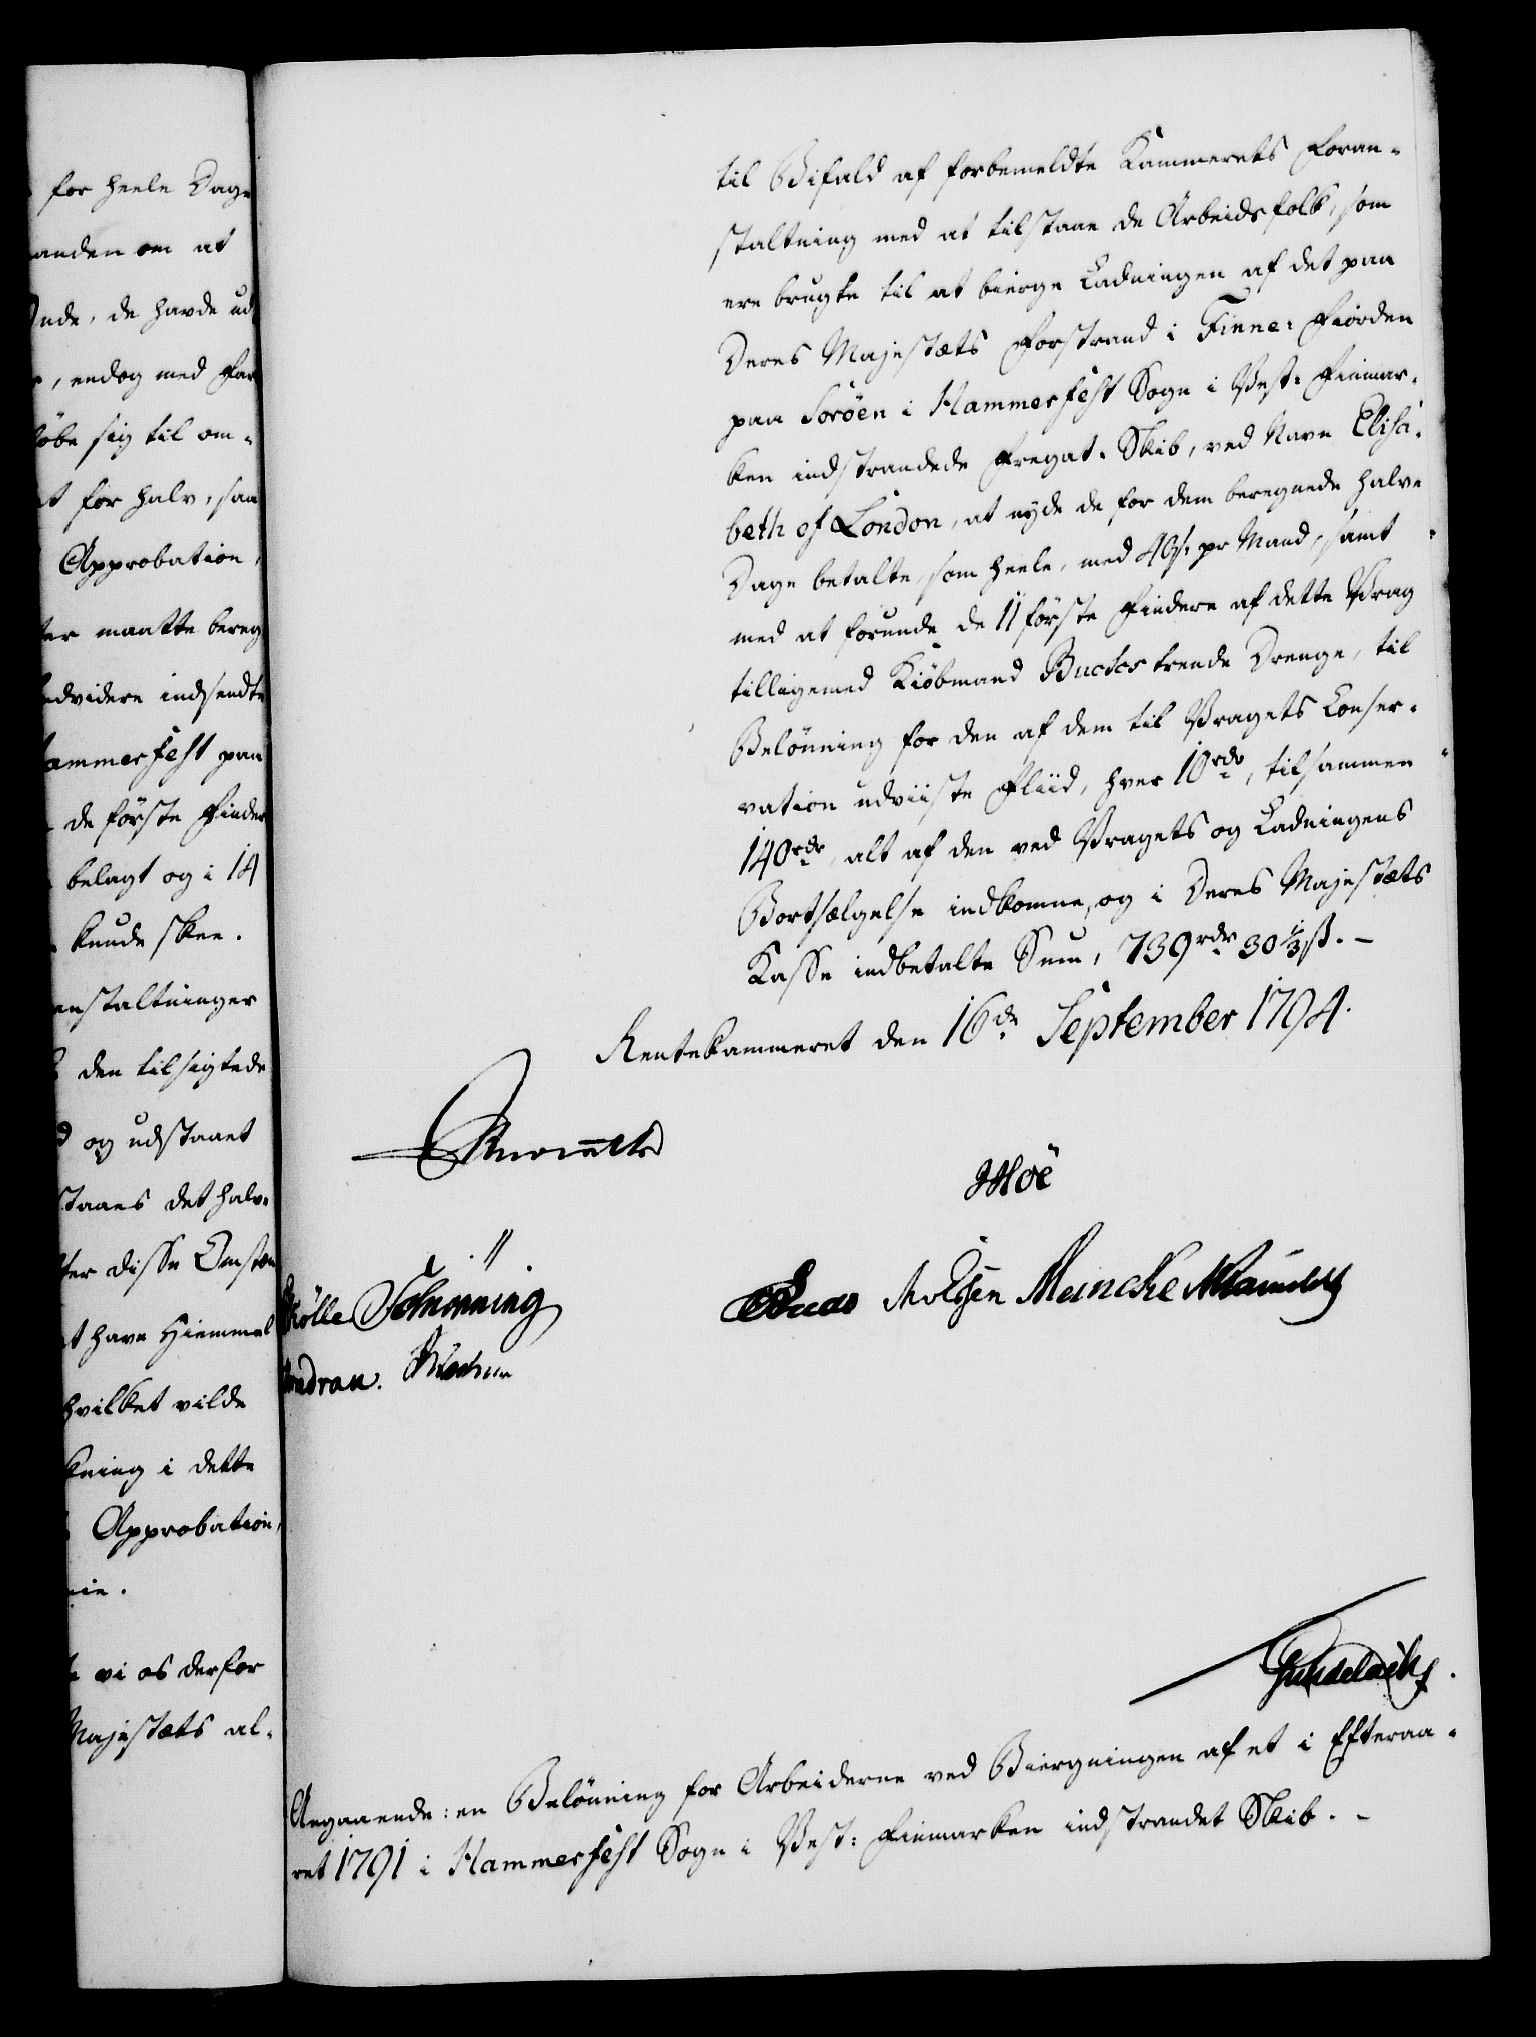 for heele Dage
anden om at
nde, de havde ud
, endog med Far
löbe sig til om-
t for halv, saa
Approbation,
ter maatte bereg
edvidere indsendte
ammerfest paa
de förste Finder
belagt og i 14
kunde skee.
anstaltninger
den tilsigtede
d og udstaaet
staaes det halv-
ter disse Omstæn
t have Hiemmel
hvilket vilde
kning i dette
Approbation,
vi os derfor
Majestæts al-
til Bifald af forbemeldte Kammerets Foran-
staltning med at tilstaae de Arbeidsfolk, som
ere brugte til at bierge Ladningen af det paa
Deres Majestæts Forstrand i Finne-Fiorden
paa Soröen i Hammerfest Sogn i Vest-Finmar-
ken indstrandede Fregat-Skib, ved Navn Elisa-
beth of London, at nyde de for dem beregnede halve
Dage betalte, som heele, med 48ß. pr Mand, samt
med at forunde de 11 förste Findere af dette Vrag
tilligemed Kiöbmand Buchs trende Drenge, til
Belönning for den af dem til Vragets Conser-
vation udviiste Fliid, hver 10 rdr, tilsammen
140 rdr, alt af den ved Vragets og Ladningens
Bortsælgelse indkomne, og i Deres Majestæts
Kasse indbetalte Sum, 739 rdr 30 1/3 ß. -
Rentekammeret den 16de September 1794.
Moe
Schönning
Meincke
Angaaende: en Belönning for Arbeiderne ved Biergningen af et i Efteraa-
ret 1791 i Hammerfest Sogn i Vest: Finmarken indstrandet Skib. -